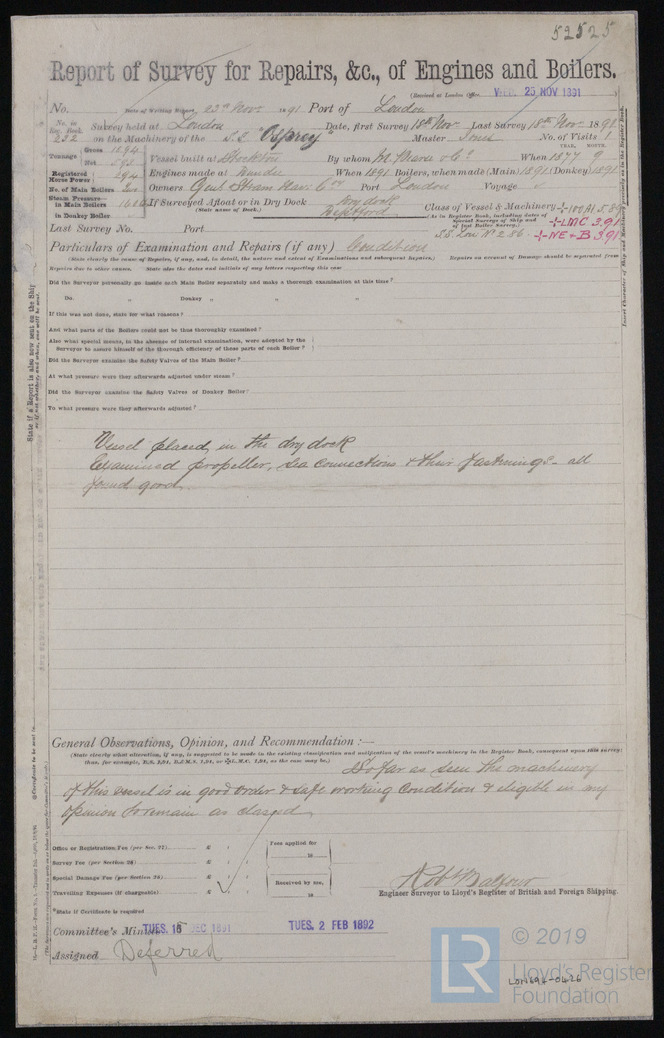 52525
Report of Survey for Repairs, &c., of Engines and Boilers.
(Received at London Office WED. 25 NOV 1891)
No. Date of Writing Report 23rd Novr 1891 Port of London
No. in Reg. Book. 232 Survey held at London Date, first Survey 18th Nov. Last Survey 18th Nov. 1891
on the Machinery of the S.S. "Osprey" Master Jones No. of Visits 1
Tonnage Gross 1294 Net
Vessel built at Stockton By whom M. Pearse & Co. When 1877 9
YEAR. MONTH.
Registered Horse Power 194 Engines made at Dundee When 1891 Boilers, when made (Main) 1891 (Donkey) 1891
No. of Main Boilers Owners Genl Steam Nav. Coy Port London Voyage
Steam Pressure in Main Boilers 160 If Surveyed Afloat or in Dry Dock Dry dock
in Donkey Boiler (State name of Dock.) Deptford
Class of Vessel & Machinery
(As in Register Book, including dates of Special Surveys of Ship and of last Boiler Survey.)
LMC 3.91
NE & B 3.91
Last Survey No. Port
Particulars of Examination and Repairs (if any) Condition
(State clearly the cause of Repairs, if any, and, in detail, the nature and extent of Examinations and subsequent Repairs.) Repairs on account of Damage should be separated from
Repairs due to other causes. State also the dates and initials of any letters respecting this case
Did the Surveyor personally go inside each Main Boiler separately and make a thorough examination at this time?
Do. " Donkey " " "
If this was not done, state for what reasons?
And what parts of the Boilers could not be thus thoroughly examined?
Also what special means, in the absence of internal examination, were adopted by the
Surveyor to assure himself of the thorough efficiency of those parts of each Boiler?
Did the Surveyor examine the Safety Valves of the Main Boiler?
At what pressure were they afterwards adjusted under steam?
Did the Surveyor examine the Safety Valves of Donkey Boiler?
To what pressure were they afterwards adjusted?
Vessel placed in the dry dock
Examined propeller, sea connections & their fastenings - all
found good.
General Observations, Opinion, and Recommendation :—
(State clearly what alteration, if any, is suggested to be made in the existing classification and notification of the vessel's machinery in the Register Book, consequent upon this survey;
thus, for example, B.S. 1,91, B.&M.S. 1,91, or L.M.C. 1,91, as the case may be.)
So far as seen the machinery
of this vessel is in good order & safe working condition & eligible in my
opinion to remain as classed
Office or Registration Fee (per Sec. 27) £ : :
Survey Fee (per Section 28) £ : :
Special Damage Fee (per Section 28) £ : :
Travelling Expenses (if chargeable) £ : :
Fees applied for
18
Received by me,
18
Robt Balfour
Engineer Surveyor to Lloyd's Register of British and Foreign Shipping.
*State if Certificate is required
Committee's Minute TUES. 15 DEC 1891 TUES. 2 FEB 1892
Assigned Deferred
State if a Report is also now sent on the Ship
Insert Character of Ship and Machinery precisely as in the Register Book.
LR © 2019
Lloyd's Register
Foundation
LON694-0426